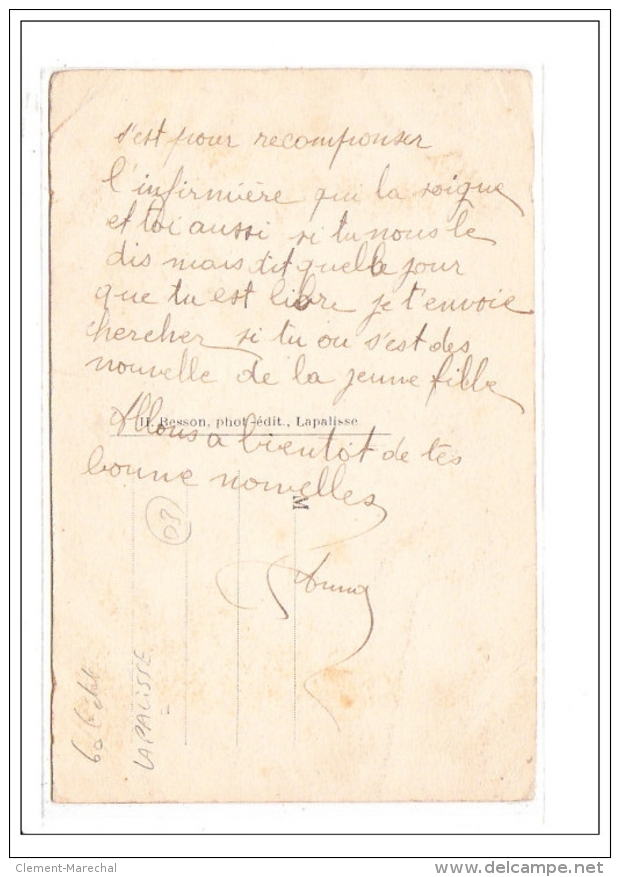 s'est pour recomponser
l'infirmière qui la soigne
et toi aussi si tu nous le
dis mais dit quelle jour
que tu est libre je t'envoie
chercher si tu ou s'est des
nouvelle de la jeune fille
H. Besson, phot.-édit., Lapalisse
Allons a bientot de tes
bonne nouvelles
M
03
Anna
LAPALISSE
Clement-Marechal
www.delcampe.net